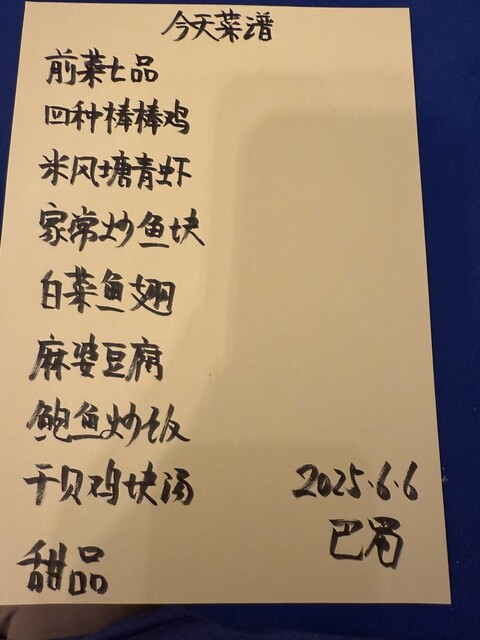 今天菜谱
前菜七品
四种棒棒鸡
米风塘青虾
家常炒鱼块
白菜鱼翅
麻婆豆腐
鲍鱼炒饭
干贝鸡块汤
甜品
2025.6.6
巴蜀